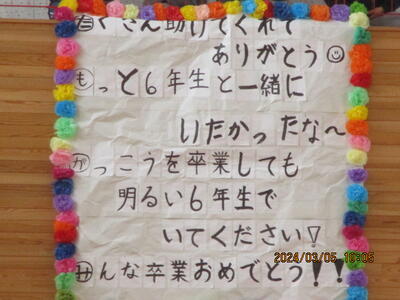 たくさん助けてくれて
ありがとう☺
もっと6年生と一緒に
いたかったな〜
がっこうを卒業しても
明るい6年生で
いてください!
みんな卒業おめでとう!!
2024/03/05 10:05